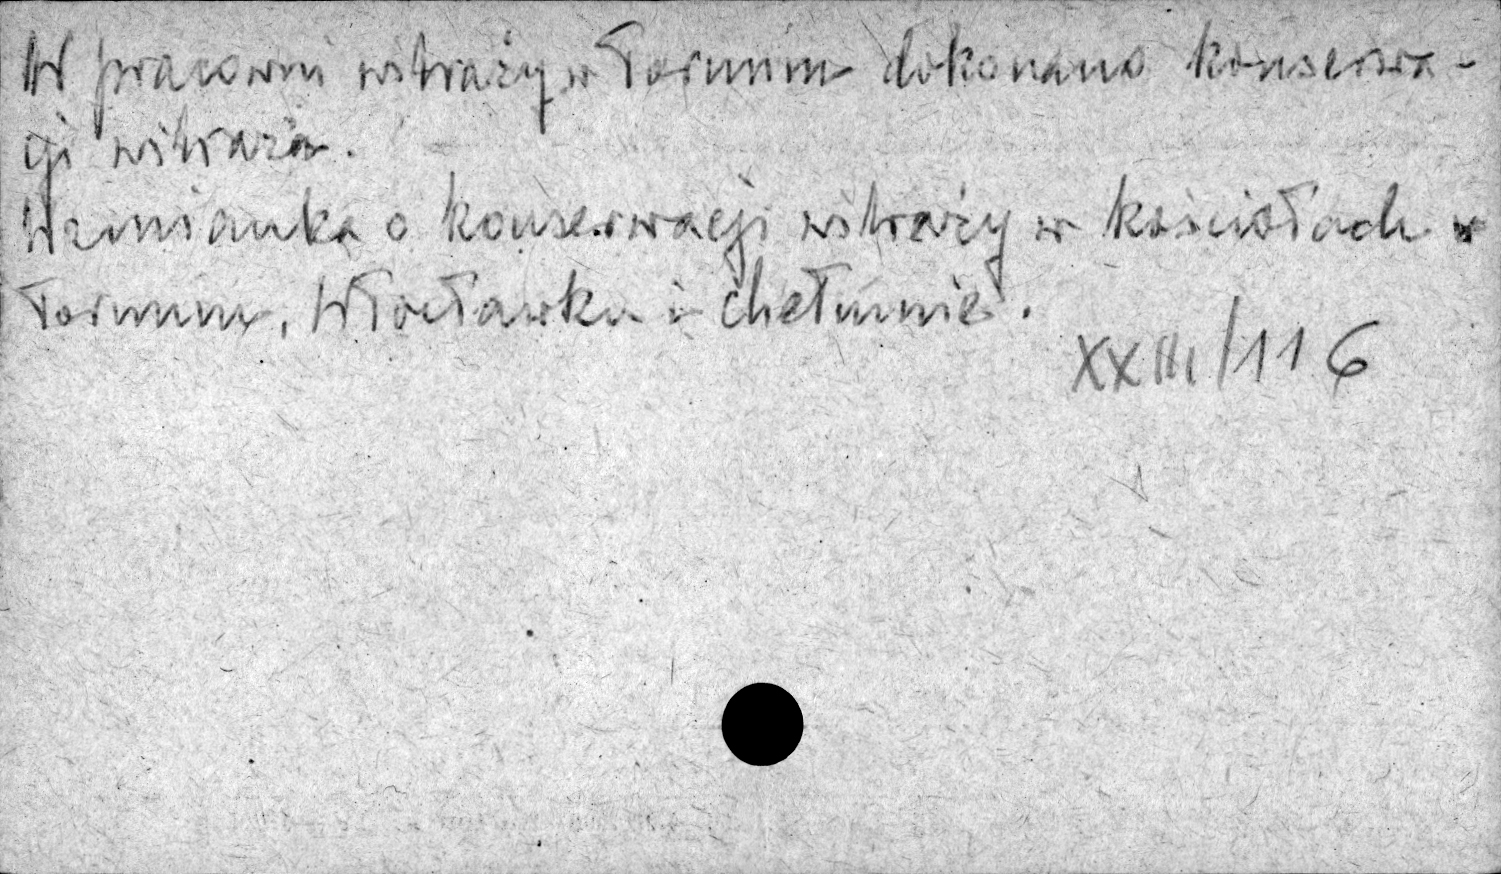 W pracowni witraży w Toruniu dokonano konserwa-
cji witraża.
Wzmianka o konserwacji witraży w kościołach w
Toruniu, Włocławku i Chełmnie.
XXIII/116